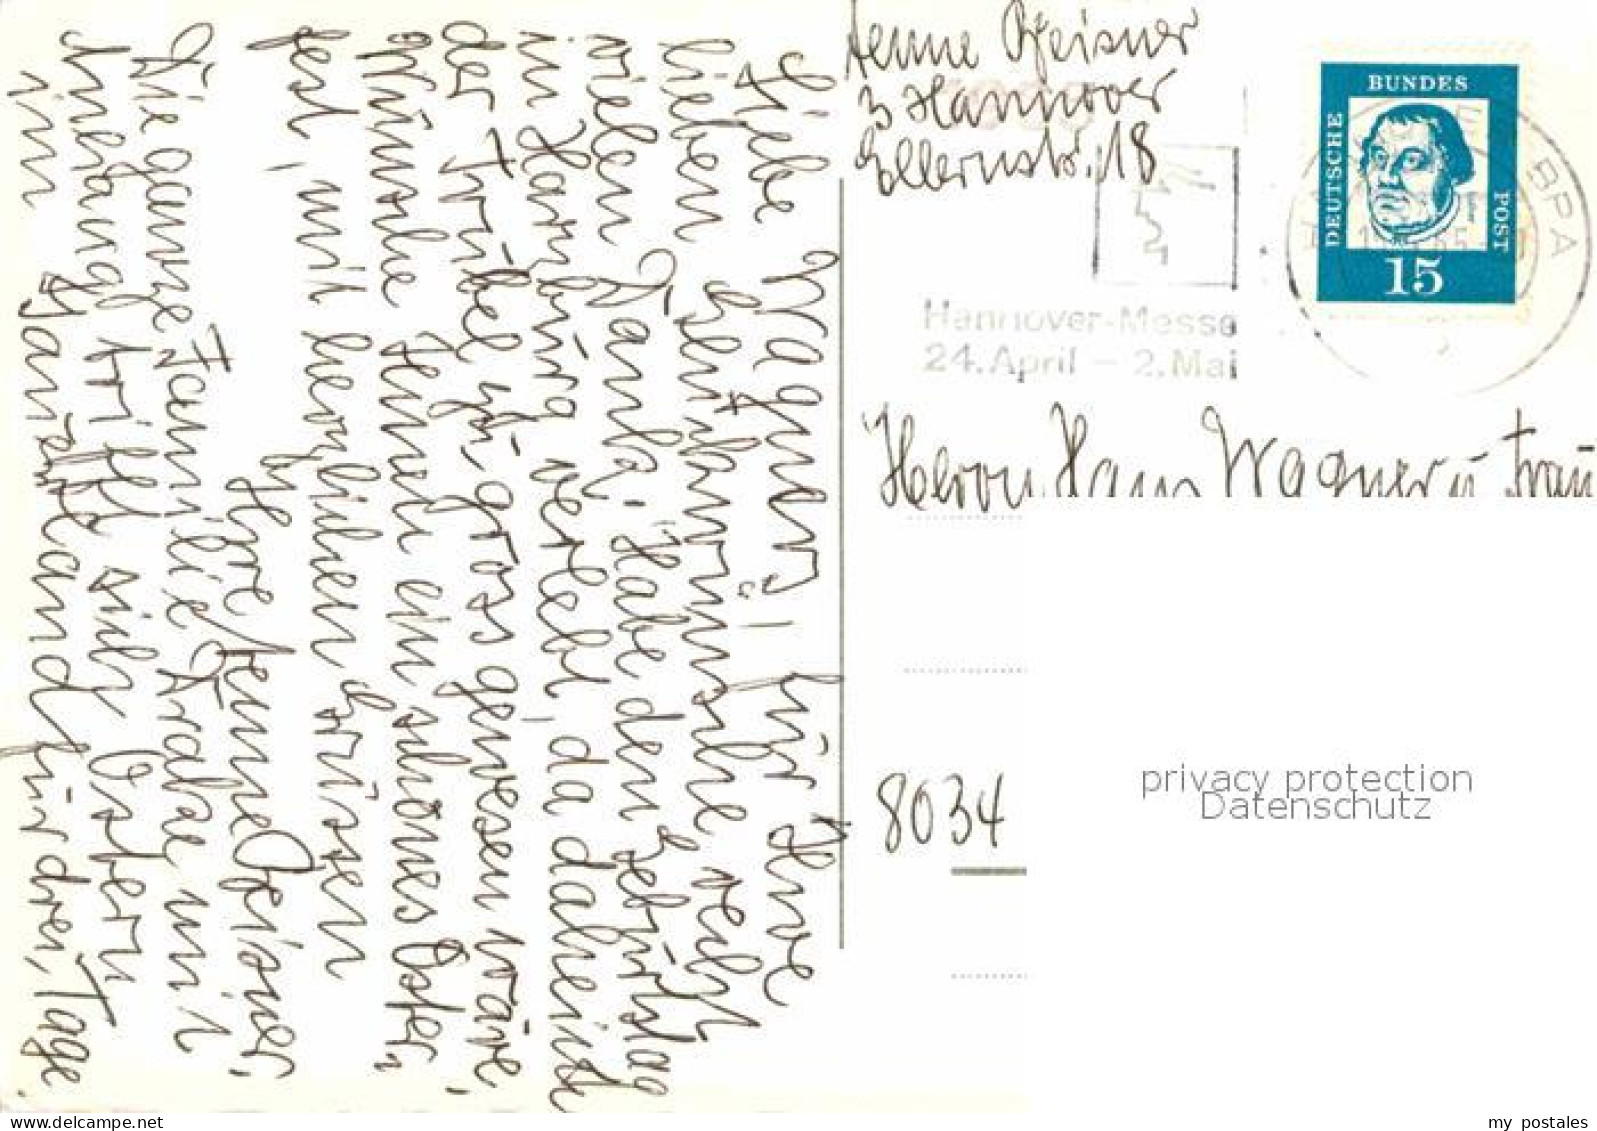 Liebe Wagners! Für Ihre
lieben Glückwünsche recht
vielen Dank. Habe den Geburtstag
in Hamburg verlebt, da daheim
der Trubel zu gross gewesen wäre.
Wünsche Ihnen ein schönes Oster-
fest, mit herzlichen Grüssen
Ihre Henne Pfeisner.
Die ganze Familie Krake mit
Anhang trifft sich Ostern
im Sauerland für drei Tage.
Henne Pfeisner
3 Hannover
Ellernstr. 18
BUNDES
DEUTSCHE
POST
15
BPA
Hannover-Messe
24. April – 2. Mai
Herrn Hans Wagner u Frau
8034
privacy protection
Datenschutz
delcampe.net
my_postales